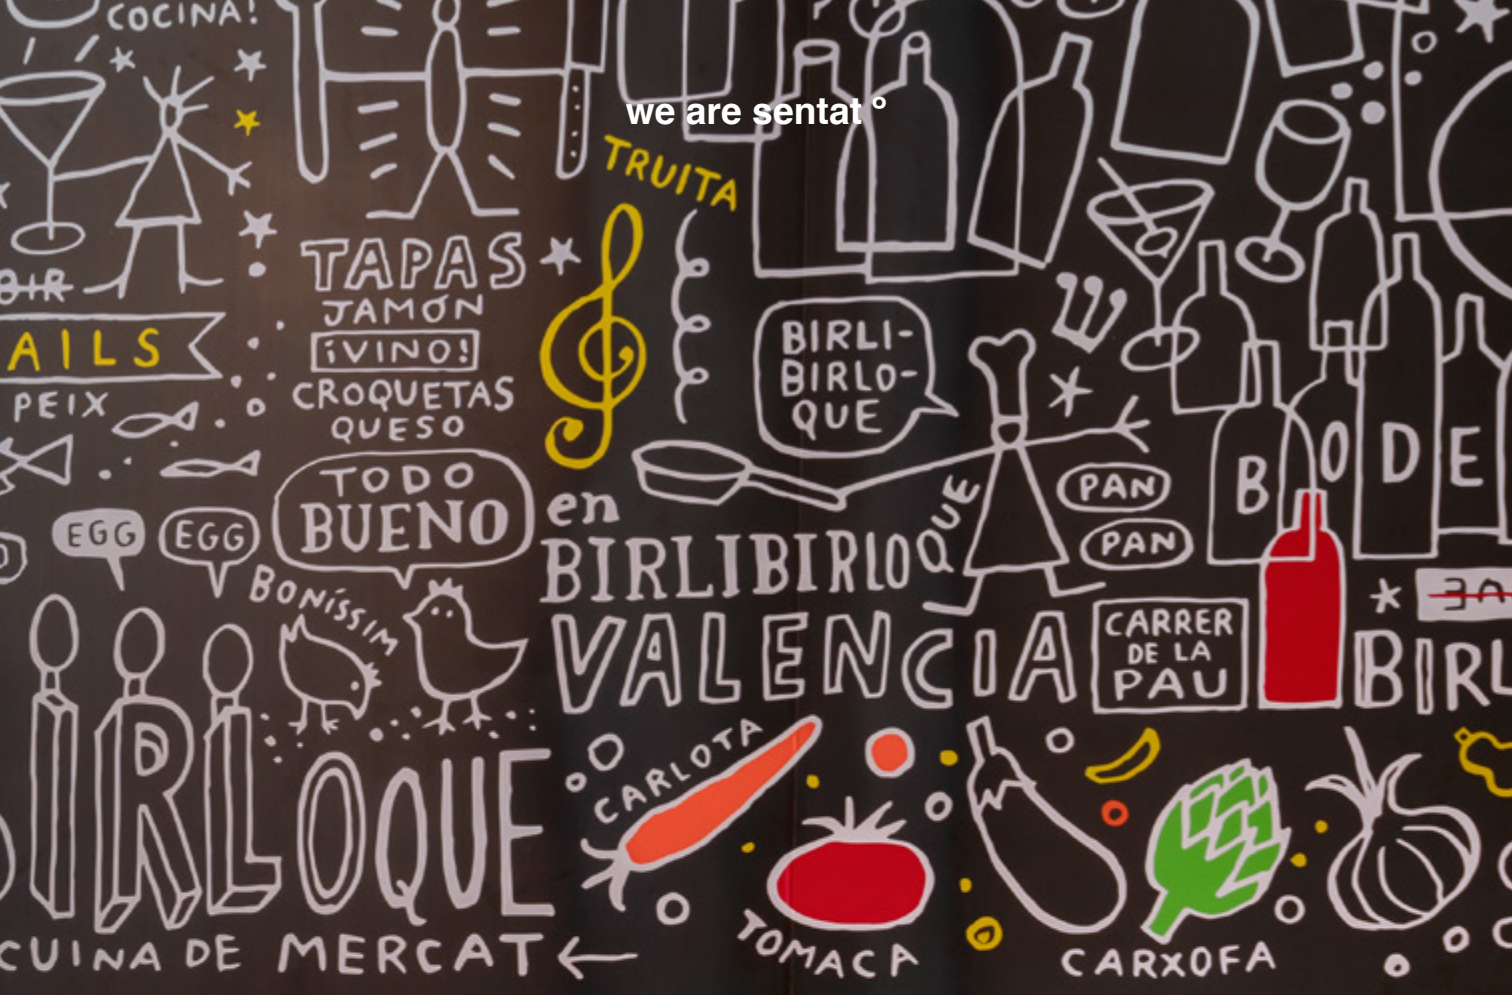 COCINA!
we are sentat º
TRUITA
TAPAS
JAMÓN
¡VINO!
CROQUETAS
QUESO
AILS
PEIX
BIRLI-
BIRLO-
QUE
TODO
BUENO
en
BIRLIBIRLOQUE
VALENCIA
EGG
EGG
BONÍSSIM
PAN
PAN
BODE
CARRER
DE LA
PAU
BIRL
IRLOQUE
CUINA DE MERCAT
CARLOTA
TOMACA
CARXOFA